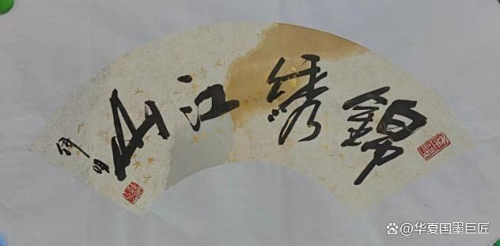 錦绣江山
华夏国墨巨匠